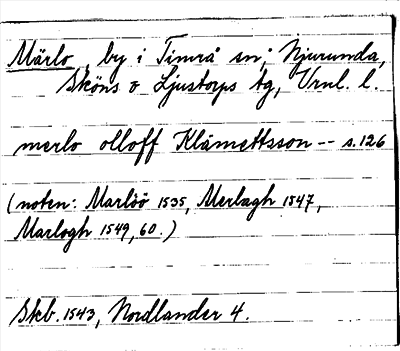 Märlo, by i Timrå sn; Njurunda,
Sköns o Ljustorps tg, Vrnl. l.
merlo olloff Klåmettsson -- s.126
(noten: Marlöö 1535, Merlagh 1547,
Marlogh 1549, 60.)
Skb. 1543, Nordlander 4.